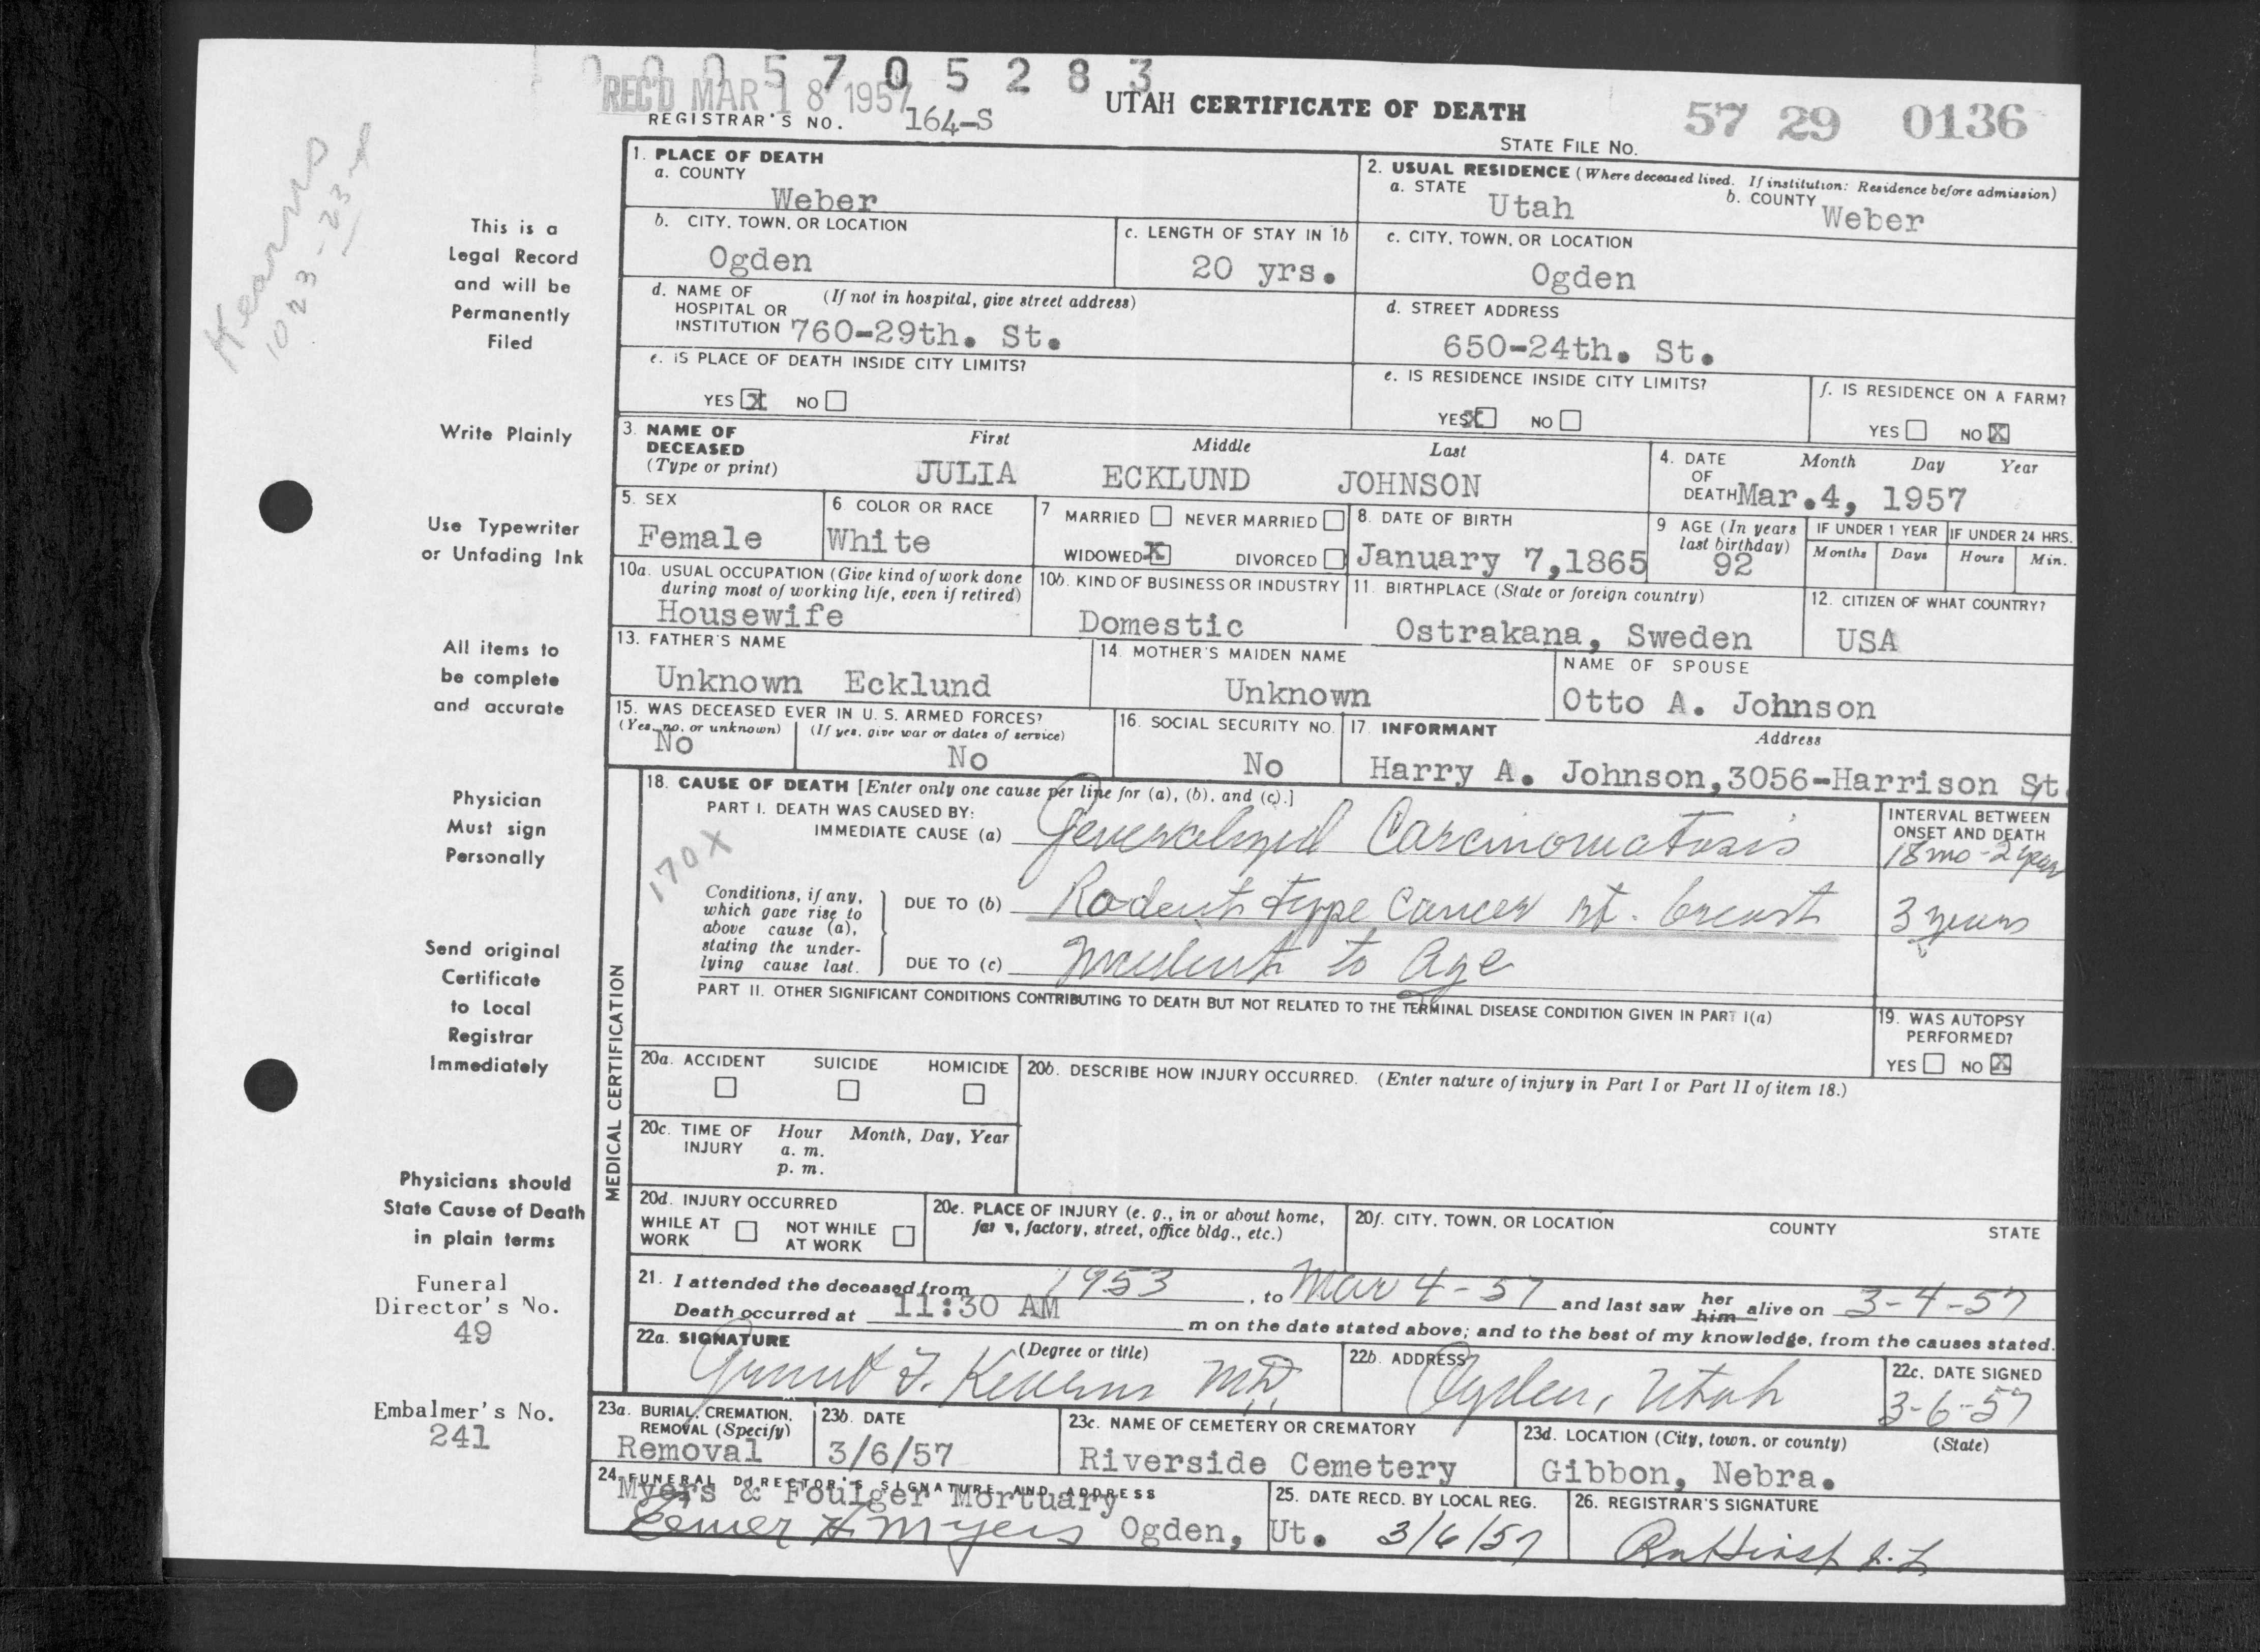 0 0 0 5 7 0 5 2 8 3
REC'D MAR 18 1957
REGISTRAR'S NO. 164-S
UTAH CERTIFICATE OF DEATH
57 29 0136
STATE FILE NO.
Kearns
10 23 - 23rd
This is a
Legal Record
and will be
Permanently
Filed
Write Plainly
Use Typewriter
or Unfading Ink
All items to
be complete
and accurate
Physician
Must sign
Personally
Send original
Certificate
to Local
Registrar
Immediately
Physicians should
State Cause of Death
in plain terms
Funeral
Director's No.
49
Embalmer's No.
241
1. PLACE OF DEATH
a. COUNTY
Weber
2. USUAL RESIDENCE (Where deceased lived. If institution: Residence before admission)
a. STATE Utah b. COUNTY Weber
b. CITY, TOWN, OR LOCATION
Ogden
c. LENGTH OF STAY IN 1b
20 yrs.
c. CITY, TOWN, OR LOCATION
Ogden
d. NAME OF HOSPITAL OR INSTITUTION (If not in hospital, give street address)
760-29th. St.
d. STREET ADDRESS
650-24th. St.
e. IS PLACE OF DEATH INSIDE CITY LIMITS?
YES X NO
e. IS RESIDENCE INSIDE CITY LIMITS?
YES X NO
f. IS RESIDENCE ON A FARM?
YES NO X
3. NAME OF DECEASED (Type or print)
First Middle Last
JULIA ECKLUND JOHNSON
4. DATE OF DEATH Month Day Year
Mar.4, 1957
5. SEX
Female
6 COLOR OR RACE
White
7 MARRIED NEVER MARRIED
WIDOWED X DIVORCED
8. DATE OF BIRTH
January 7,1865
9 AGE (In years last birthday)
92
IF UNDER 1 YEAR IF UNDER 24 HRS.
Months Days Hours Min.
10a. USUAL OCCUPATION (Give kind of work done during most of working life, even if retired)
Housewife
10b. KIND OF BUSINESS OR INDUSTRY
Domestic
11. BIRTHPLACE (State or foreign country)
Ostrakana, Sweden
12. CITIZEN OF WHAT COUNTRY?
USA
13. FATHER'S NAME
Unknown Ecklund
14. MOTHER'S MAIDEN NAME
Unknown
NAME OF SPOUSE
Otto A. Johnson
15. WAS DECEASED EVER IN U. S. ARMED FORCES?
(Yes, no, or unknown) (If yes, give war or dates of service)
No No
16. SOCIAL SECURITY NO.
No
17. INFORMANT Address
Harry A. Johnson,3056-Harrison St.
MEDICAL CERTIFICATION
18. CAUSE OF DEATH [Enter only one cause per line for (a), (b), and (c).]
PART I. DEATH WAS CAUSED BY:
IMMEDIATE CAUSE (a) Generalized Carcinomatosis
INTERVAL BETWEEN ONSET AND DEATH
18 mo - 2 year
170X
Conditions, if any, which gave rise to above cause (a), stating the underlying cause last.
DUE TO (b) Rodent type Cancer rt. breast
3 years
DUE TO (c) Incident to Age
PART II. OTHER SIGNIFICANT CONDITIONS CONTRIBUTING TO DEATH BUT NOT RELATED TO THE TERMINAL DISEASE CONDITION GIVEN IN PART I(a)
19. WAS AUTOPSY PERFORMED?
YES NO X
20a. ACCIDENT SUICIDE HOMICIDE
20b. DESCRIBE HOW INJURY OCCURRED. (Enter nature of injury in Part I or Part II of item 18.)
20c. TIME OF INJURY Hour Month, Day, Year
a. m.
p. m.
20d. INJURY OCCURRED
WHILE AT WORK NOT WHILE AT WORK
20e. PLACE OF INJURY (e. g., in or about home, farm, factory, street, office bldg., etc.)
20f. CITY, TOWN, OR LOCATION COUNTY STATE
21. I attended the deceased from 1953, to Mar 4-57 and last saw her him alive on 3-4-57
Death occurred at 11:30 AM m on the date stated above; and to the best of my knowledge, from the causes stated.
22a. SIGNATURE (Degree or title)
Grant F. Kearns MD.
22b. ADDRESS
Ogden, Utah
22c. DATE SIGNED
3-6-57
23a. BURIAL, CREMATION, REMOVAL (Specify)
Removal
23b. DATE
3/6/57
23c. NAME OF CEMETERY OR CREMATORY
Riverside Cemetery
23d. LOCATION (City, town, or county) (State)
Gibbon, Nebra.
24. FUNERAL DIRECTOR'S SIGNATURE AND ADDRESS
Myers & Foulger Mortuary
Elmer H Myers Ogden, Ut.
25. DATE RECD. BY LOCAL REG.
3/6/57
26. REGISTRAR'S SIGNATURE